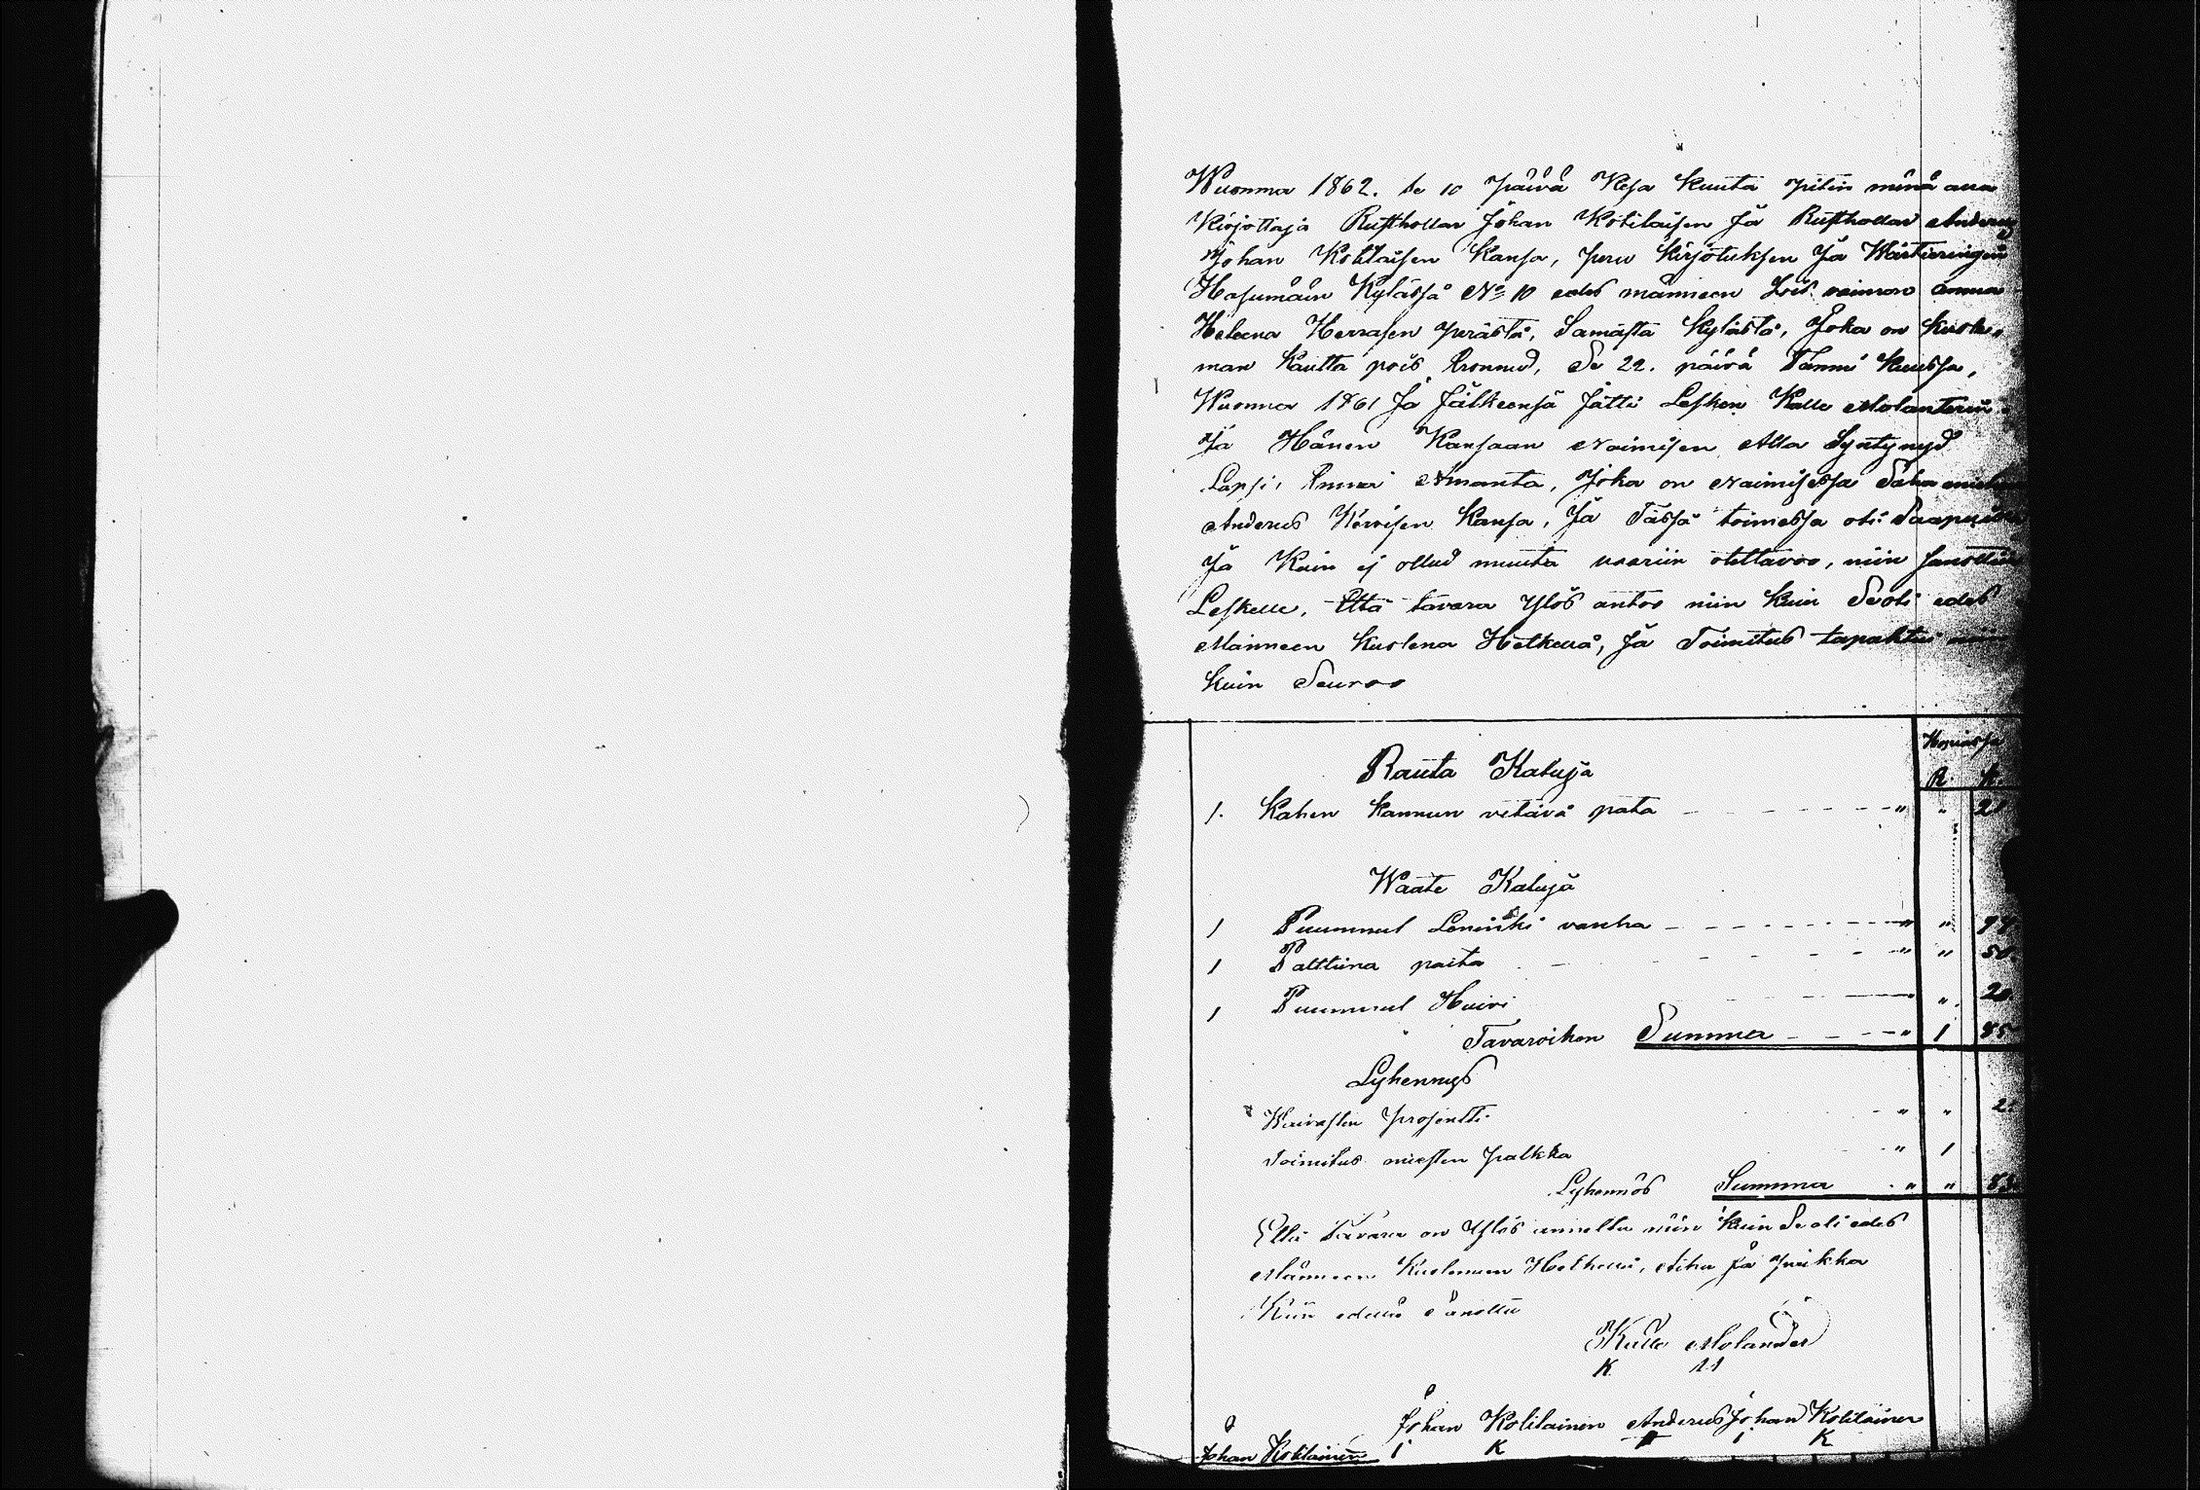 Wuonna 1862. se 10 päivä Kesa kuuta pitin minä alla
Kirjottaja Rusthollar Johan Kotilaisen Ja Rusthollar Anderus
Johan Kotilaisen Kansa, peru kirjotuksen Ja Wärtieringin
Hasumäin Kylässä No 10 edes männeen Lois vaimon Anna
Heleena Herrasen perästä, Samasta Kylästä, Joka on kuole,
man kautta pois, Se 22. päivä Tammi kuussa,
Wuonna 1861 Ja Jälkeensä Jätti Lesken Kalle Molanterin
Ja Hänen Kansaan Naimisen Alla Syntynyd
Lapsi, Amanta, Joka on Naimisessa
Anderus Kansa, Ja Tässä toimessa oli
Ja Kuin ej ollud muuta vaariin otettavoo, niin sanottiin
Leskelle, Että tavara Ylös antoo niin kuin Se oli edes
Männeen kuolema Hetkellä, Ja Toimitus tapahtui niin
kuin Seuroo
R. K.
Rauta Kaluja
1. Kahen kannun vetävä pata " "
Waate Kaluja
1 Puumnul Leninki vanha " "
1 Palttina paita " " 50
1 Puumnul Huivi " " 20
Tavaroihen Summa " 1 85
Lyhennys
Waivasten prosentti " " 2
Toimitus miesten palkka " 1
Lyhennös Summa " "
Että Tavara on Ylös annettu niin kuin Se oli edes
Männeen Kuoleman Hetkellä, Aika Ja paikka
Kuin edellä Sanottu
Kalle Molander
K M
Johan Kotilainen Anderus Johan Kotilainen
Johan Kotilainen I K A I K